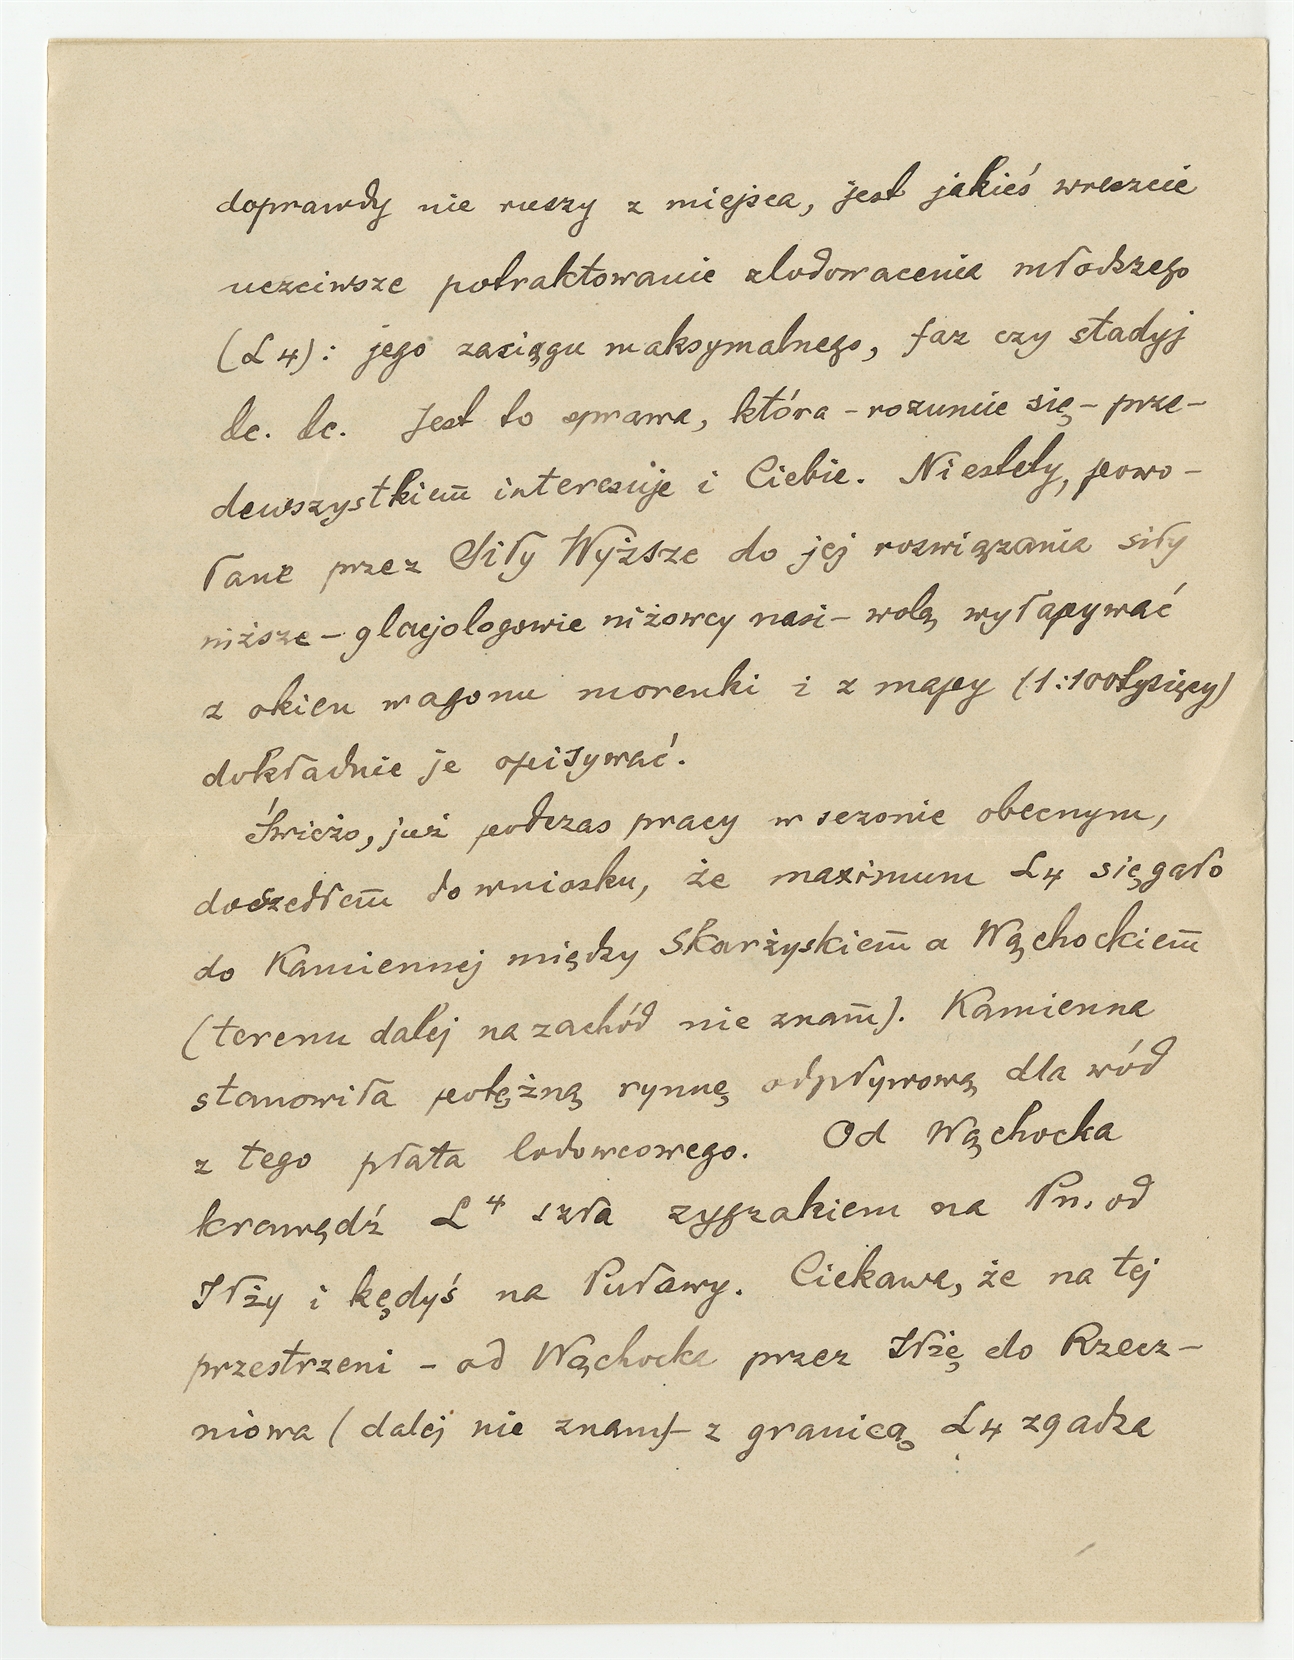 doprawdy nie ruszy z miejsca, jest jakieś wreszcie
uczciwsze potraktowanie zlodowacenia młodszego
(L4): jego zasięgu maksymalnego, faz czy stadyj
tc. tc. Jest to sprawa, która – rozumie się – prze-
dewszystkiem interesuje i Ciebie. Niestety, powo-
łane przez Siły Wyższe do jej rozwiązania siły
niższe – glacjologowie niżowcy nasi – wolą wyłapywać
z okien wagonu morenki i z mapy (1:100tysięcy)
dokładnie je opisywać.
Świeżo, już podczas pracy w sezonie obecnym,
doszedłem do wniosku, że maximum L4 sięgało
do Kamiennej między Skarżyskiem a Wąchockiem
(terenu dalej na zachód nie znam). Kamienna
stanowiła potężną rynnę odpływową dla wód
z tego płata lodowcowego. Od Wąchocka
krawędź L4 szła zygzakiem na Pn. od
Iłży i kędyś na Puławy. Ciekawe, że na tej
przestrzeni – od Wąchocka przez Iłżę do Rzecz-
niowa (dalej nie znam) – z granicą L4 zgadza